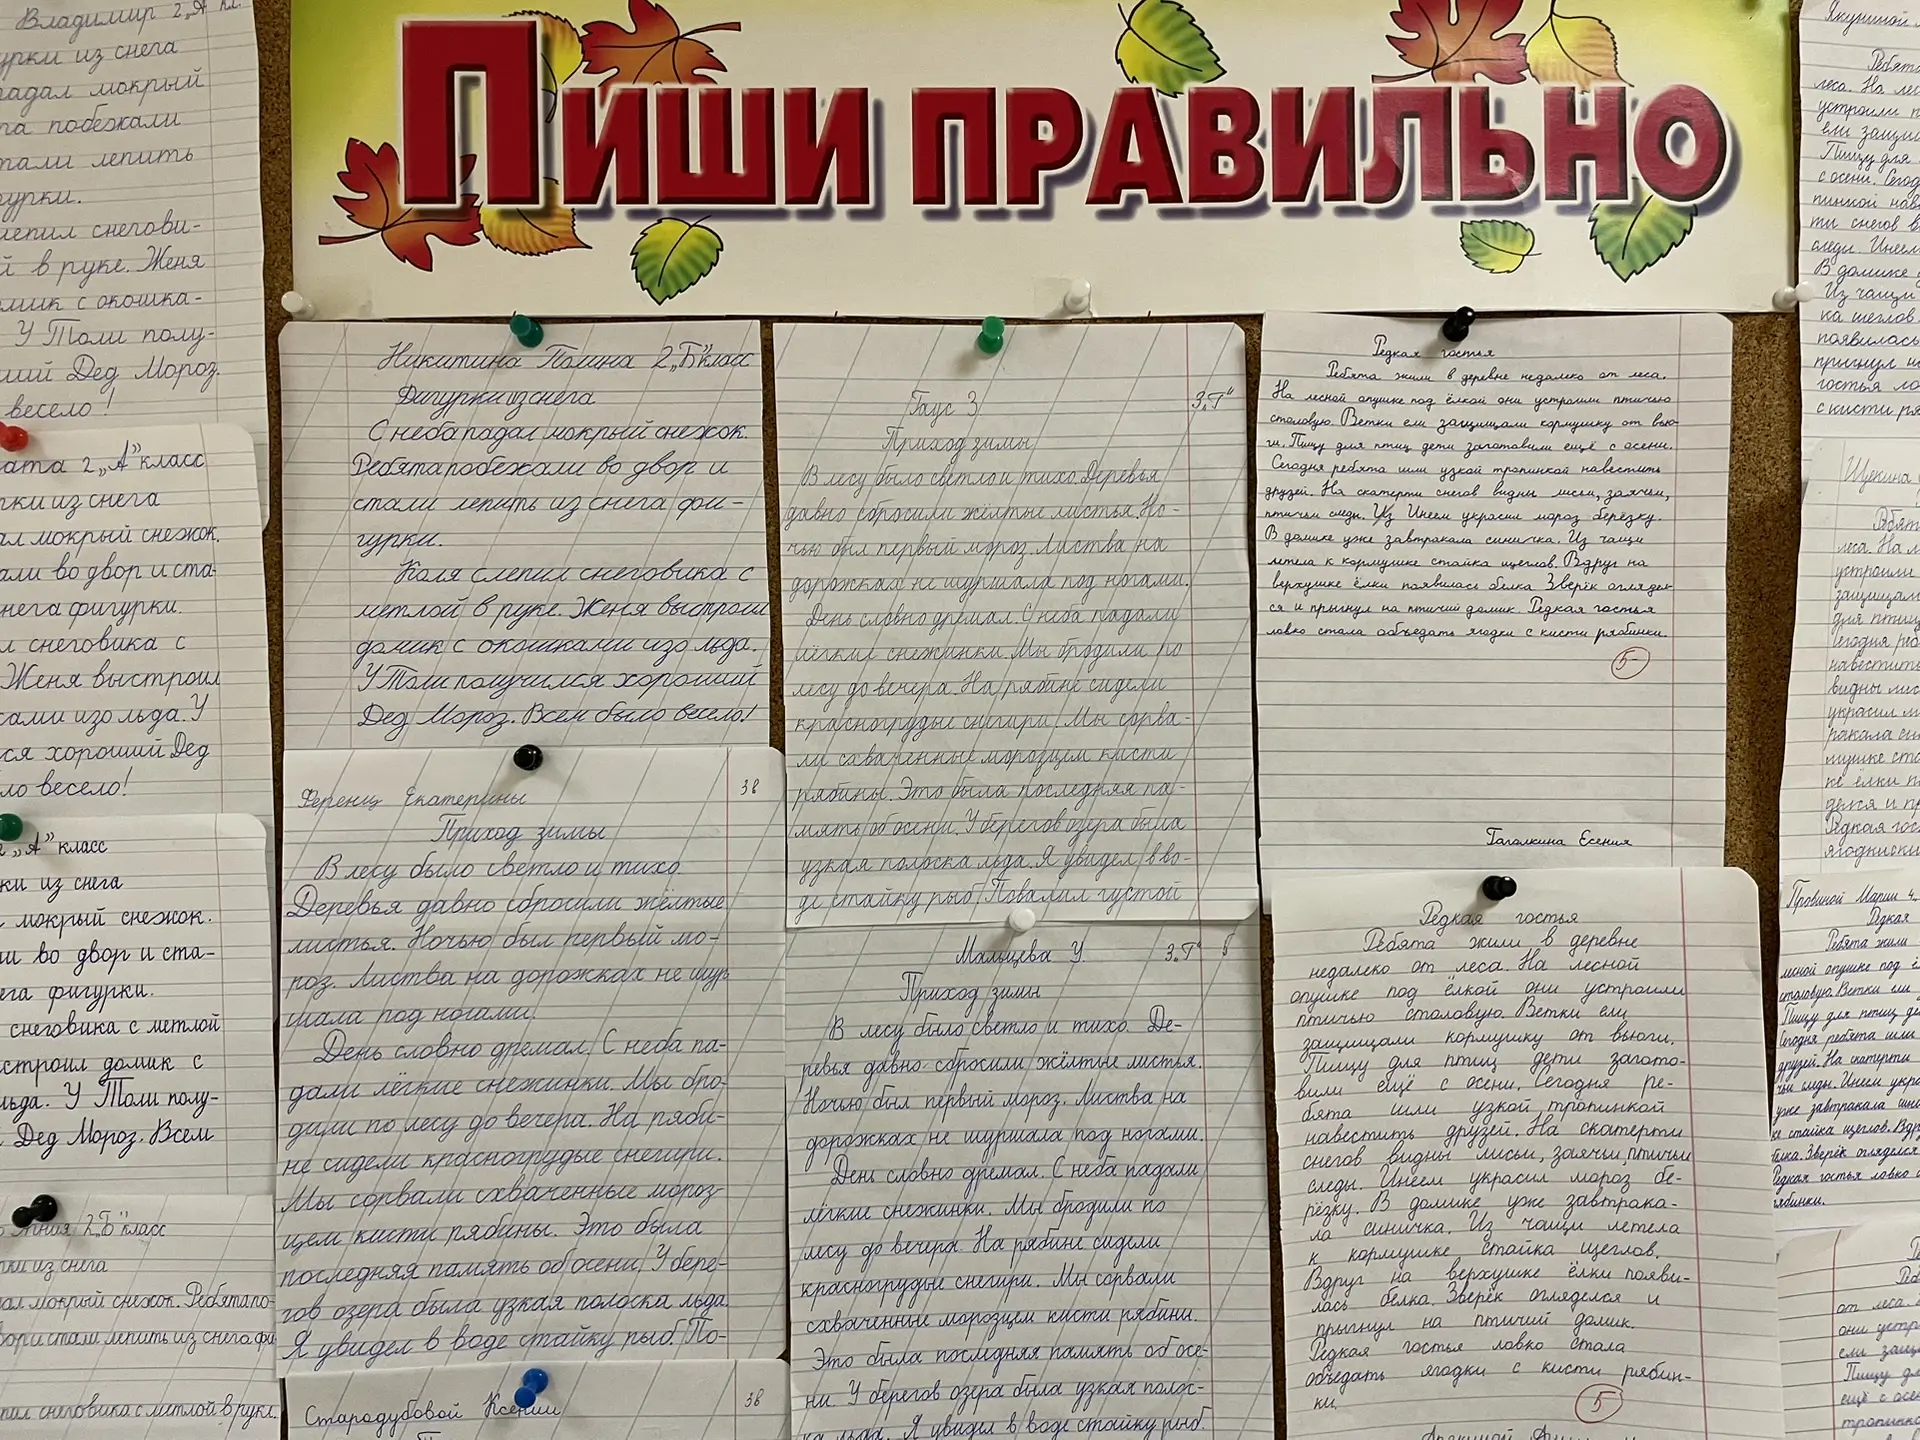 Пиши правильно
Владимир 2 „А" кл.
урки из снега
падал мокрый
та побежали
тали лепить
гурки.
лепил снегови-
й в руке. Женя
омик с окошка-
У Толи полу-
ший Дед Мороз.
весело!
ата 2 „А" класс
рки из снега
ал мокрый снежок.
али во двор и ста-
нега фигурки.
л снеговика с
Женя выстроил
ками изо льда. У
ся хороший Дед
ло весело!
2 „А" класс
ки из снега
мокрый снежок.
ли во двор и ста-
ега фигурки.
снеговика с метлой
строил домик с
льда. У Толи полу-
Дед Мороз. Всем
2 „Б" класс
ки из снега
ал мокрый снежок. Ребята по-
двор и стали лепить из снега фи
пил снеговика с метлой в руке.
Никитина Полина 2 „Б" класс
Фигурки из снега
С неба падал мокрый снежок.
Ребята побежали во двор и
стали лепить из снега фи-
гурки.
Коля слепил снеговика с
метлой в руке. Женя выстроил
домик с окошками изо льда.
У Толи получился хороший
Дед Мороз. Всем было весело!
Ференц Екатерины 3В
Приход зимы
В лесу было светло и тихо.
Деревья давно сбросили жёлтые
листья. Ночью был первый мо-
роз. Листва на дорожках не шур
шала под ногами.
День словно дремал. С неба па-
дали лёгкие снежинки. Мы бро-
дили по лесу до вечера. На ряби-
не сидели красногрудые снегири.
Мы сорвали схваченные мороз-
цем кисти рябины. Это была
последняя память об осени. У бере-
гов озера была узкая полоска льда.
Я увидел в воде стайку рыб. По-
Стародубовой Ксении 3В
Гаус З 3 „Г"
Приход зимы
В лесу было светло и тихо. Деревья
давно сбросили жёлтые листья. Но-
чью был первый мороз. Листва на
дорожках не шуршала под ногами.
День словно дремал. С неба падали
лёгкие снежинки. Мы бродили по
лесу до вечера. На рябине сидели
красногрудые снегири. Мы сорва-
ли схваченные морозцем кисти
рябины. Это была последняя па-
мять об осени. У берегов озера была
узкая полоска льда. Я увидел в во-
де стайку рыб. Повалил густой
Мальцева У. 3 „Г"
Приход зимы
В лесу было светло и тихо. Де-
ревья давно сбросили жёлтые листья.
Ночью был первый мороз. Листва на
дорожках не шуршала под ногами.
День словно дремал. С неба падали
лёгкие снежинки. Мы бродили по
лесу до вечера. На рябине сидели
красногрудые снегири. Мы сорвали
схваченные морозцем кисти рябины.
Это была последняя память об осе-
ни. У берегов озера была узкая полос-
ка льда. Я увидел в воде стайку рыб
Редкая гостья
Ребята жили в деревне недалеко от леса.
На лесной опушке под ёлкой они устроили птичью
столовую. Ветки ели защищали кормушку от вью-
ги. Пищу для птиц дети заготовили ещё с осени.
Сегодня ребята шли узкой тропинкой навестить
друзей. На скатерти снегов видны лисьи, заячьи,
птичьи следы. Из Инеем украсил мороз берёзку.
В домике уже завтракала синичка. Из чащи
летела к кормушке стайка щеглов. Вдруг на
верхушке ёлки появилась белка. Зверёк огляделс
ся и прыгнул на птичий домик. Редкая гостья
ловко стала объедать ягодки с кисти рябинки.
5-
Гаголкина Есения
Редкая гостья
Ребята жили в деревне
недалеко от леса. На лесной
опушке под ёлкой они устроили
птичью столовую. Ветки ели
защищали кормушку от вьюги.
Пищу для птиц дети загото-
вили ещё с осени. Сегодня ре-
бята шли узкой тропинкой
навестить друзей. На скатерти
снегов видны лисьи, заячьи, птичьи
следы. Инеем украсил мороз бе-
рёзку. В домике уже завтрака-
ла синичка. Из чащи летела
к кормушке стайка щеглов.
Вдруг на верхушке ёлки появи-
лась белка. Зверёк огляделся и
прыгнул на птичий домик.
Редкая гостья ловко стала
объедать ягодки с кисти рябин-
ки.
5
Якуниной
Ребята
леса. На лес
устроили п
ели защи
Пищу для
с осени. Сегод
пинкой нав
ти снегов в
следы. Инеем
В домике
Из чащи
ка щеглов
появилась
прыгнул на
гостья ло
с кисти ря
Щукина
Ребят
леса. На л
устроили
защищал
для птиц
Сегодня реб
навестить
видны лис
украсил м
ракала си
мушке ста
ке ёлки п
делся и пр
Редкая гос
ягодки с ки
Прониной Марии 4
Редкая
Ребята жили
лесной опушке под ё
столовую. Ветки ели
Пищу для птиц де
Сегодня ребята шли
друзей. На скатерти
чьи следы. Инеем укра
уже завтракала сини
ке стайка щеглов. Вдр
белка. Зверёк огляделся
Редкая гостья ловко с
рябинки.
Р
Реб
от леса.
они устр
ели защ
Пищу дл
ещё с осе
тропинко